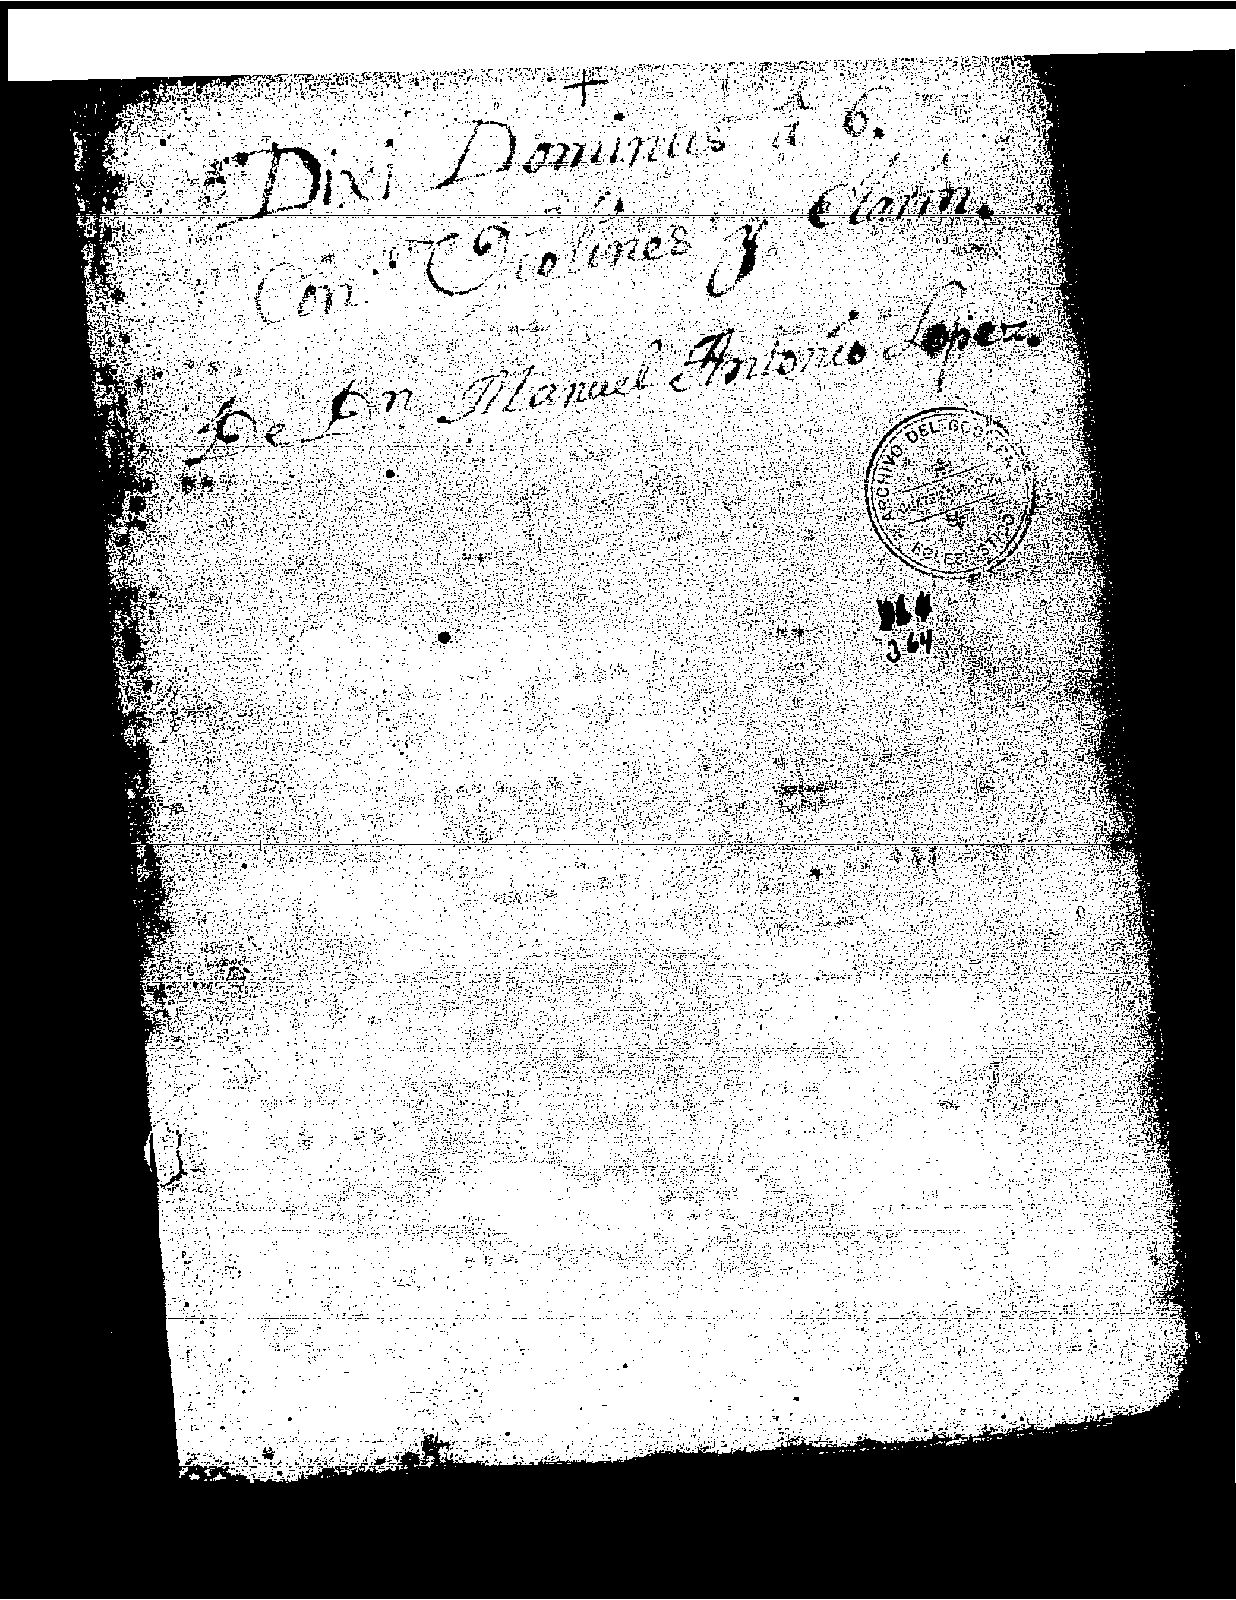 +
Dixi Dominus à 6.
Con Violines y Clarin.
De Dn Manuel Antonio Lopez.
ARCHIVO DEL
364